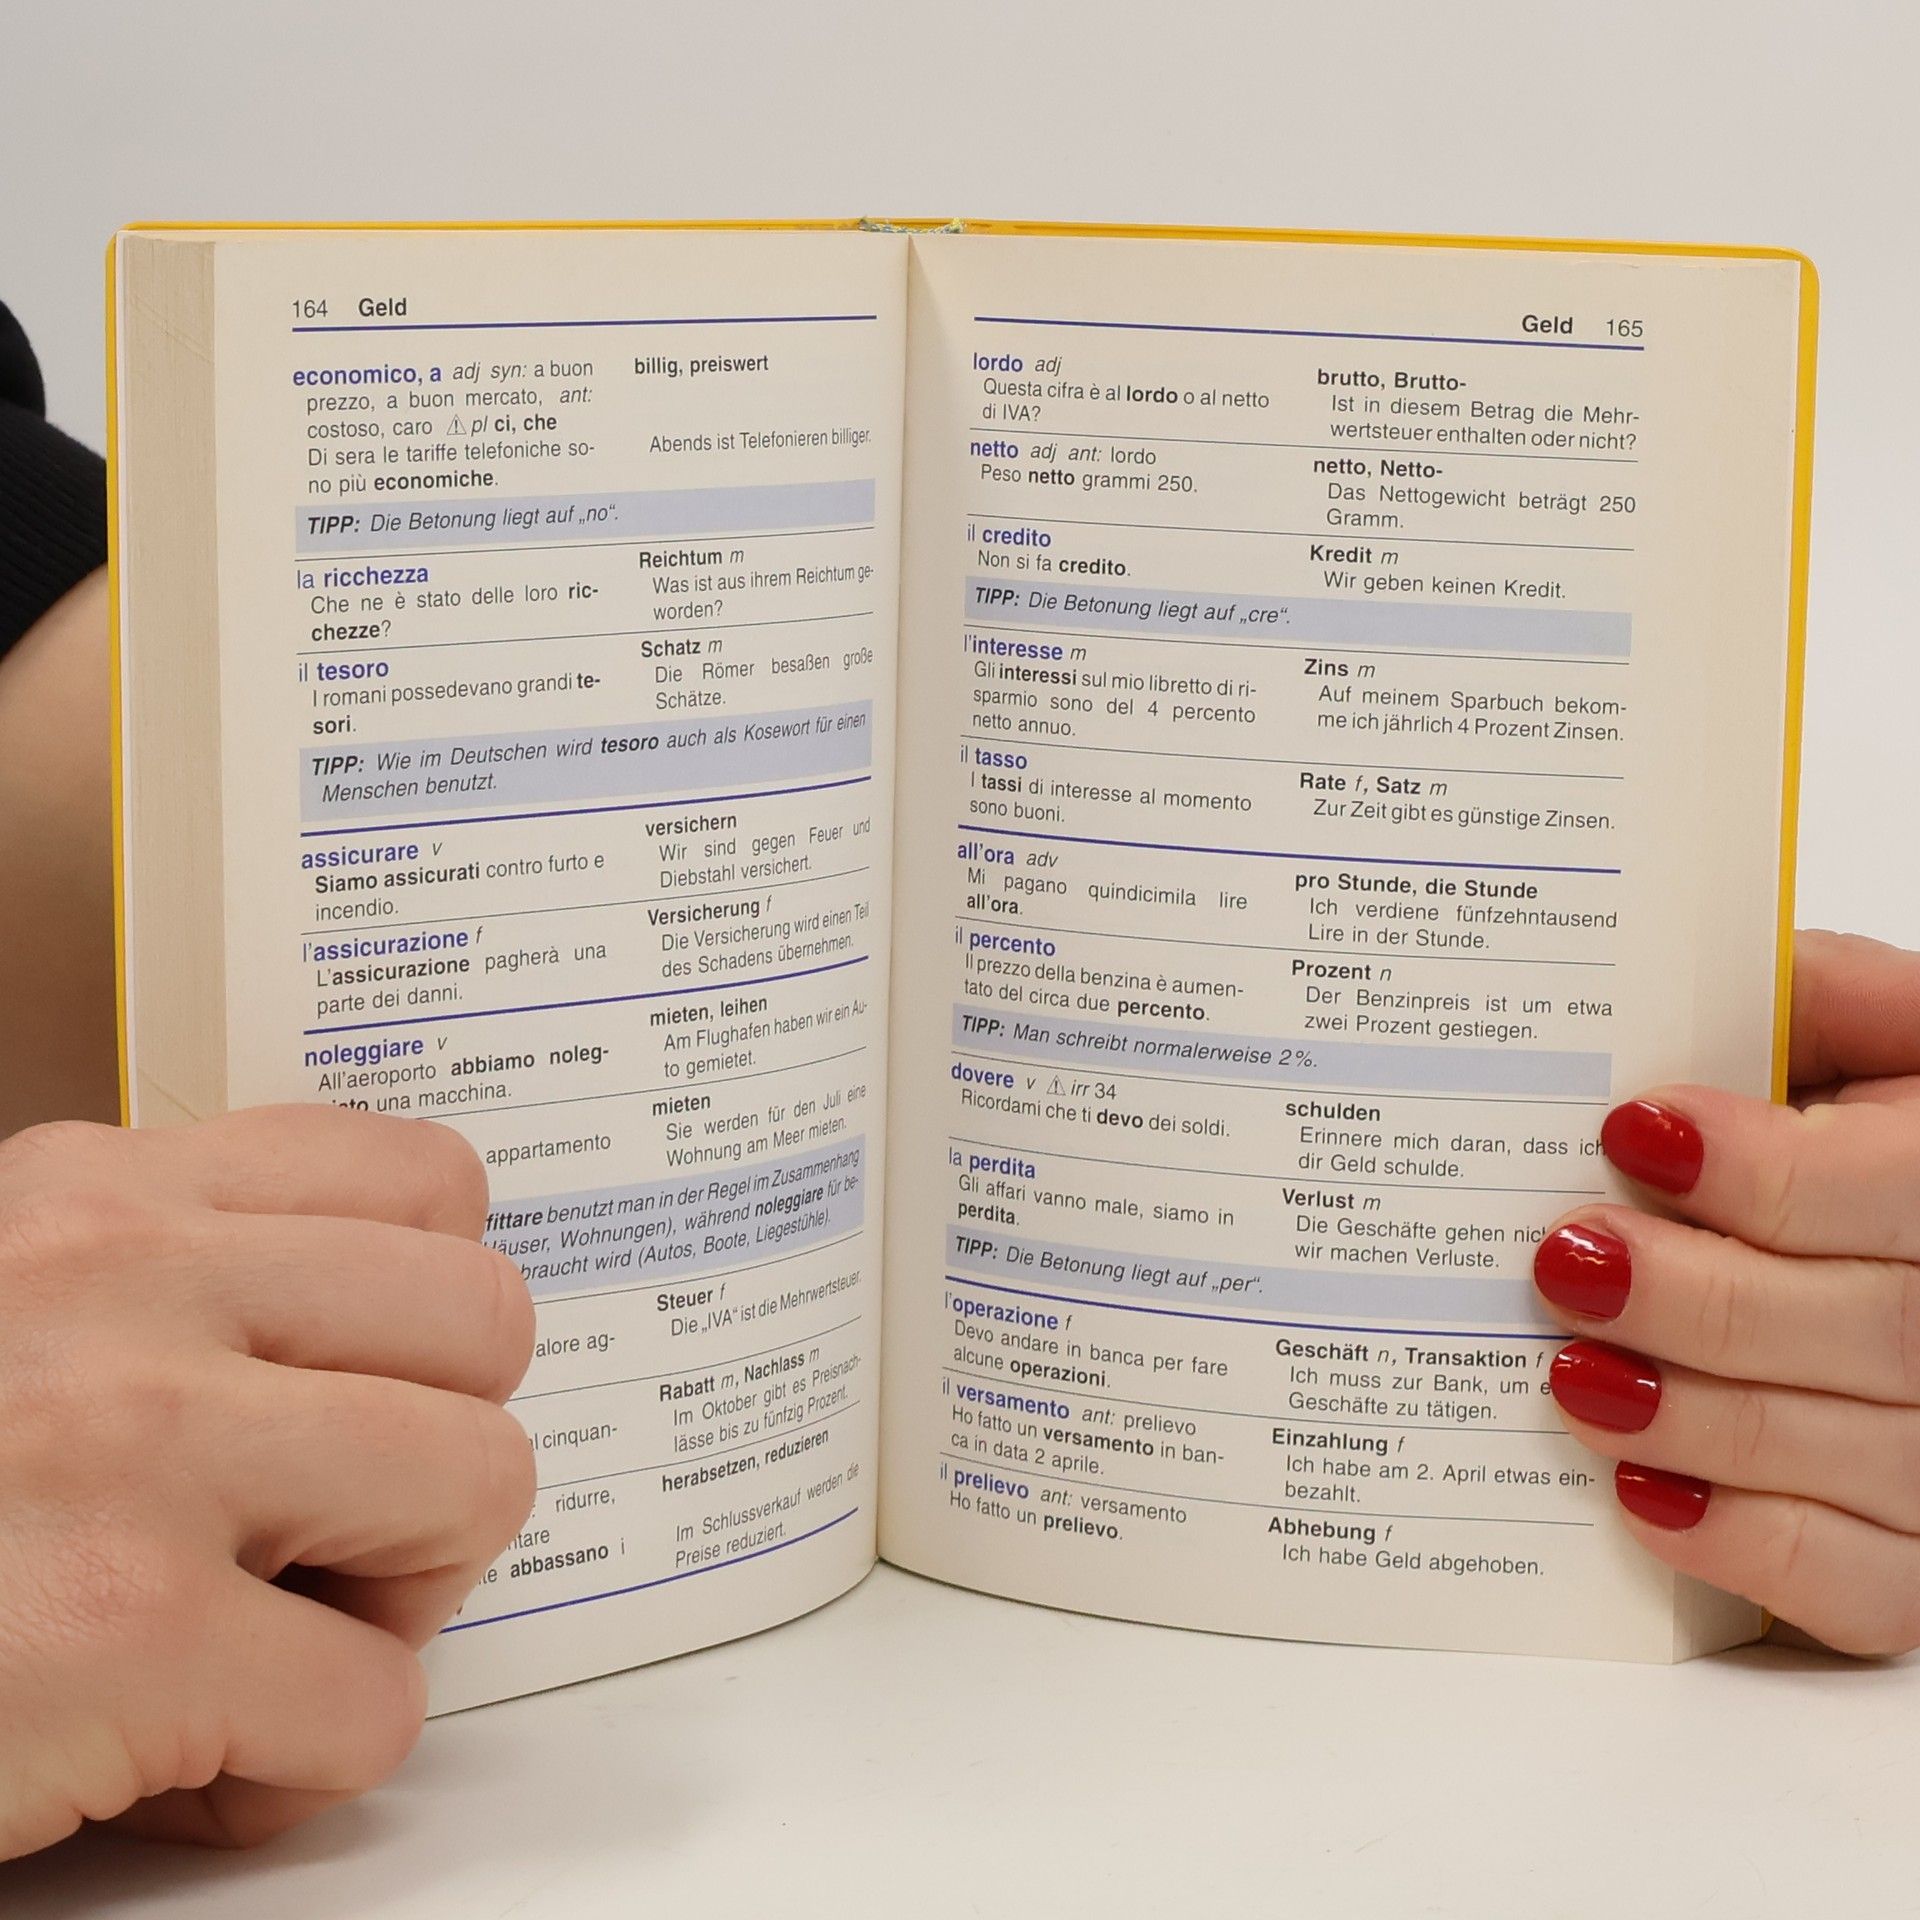 164 Geld
economico, a adj syn: a buon
prezzo, a buon mercato, ant:
costoso, caro ⚠ pl ci, che
Di sera le tariffe telefoniche so-
no più economiche.
billig, preiswert
Abends ist Telefonieren billiger.
TIPP: Die Betonung liegt auf „no“.
la ricchezza
Che ne è stato delle loro ric-
chezze?
Reichtum m
Was ist aus ihrem Reichtum ge-
worden?
il tesoro
I romani possedevano grandi te-
sori.
Schatz m
Die Römer besaßen große
Schätze.
TIPP: Wie im Deutschen wird tesoro auch als Kosewort für einen
Menschen benutzt.
assicurare v
Siamo assicurati contro furto e
incendio.
versichern
Wir sind gegen Feuer und
Diebstahl versichert.
l'assicurazione f
L'assicurazione pagherà una
parte dei danni.
Versicherung f
Die Versicherung wird einen Teil
des Schadens übernehmen.
noleggiare v
All'aeroporto abbiamo noleg-
una macchina.
mieten, leihen
Am Flughafen haben wir ein Au-
to gemietet.
appartamento
mieten
Sie werden für den Juli eine
Wohnung am Meer mieten.
fittare benutzt man in der Regel im Zusammenhang
äuser, Wohnungen), während noleggiare für be-
braucht wird (Autos, Boote, Liegestühle).
alore ag-
Steuer f
Die „IVA“ ist die Mehrwertsteuer.
cinquan-
Rabatt m, Nachlass m
Im Oktober gibt es Preisnach-
lässe bis zu fünfzig Prozent.
ridurre,
ntare
abbassano i
herabsetzen, reduzieren
Im Schlussverkauf werden die
Preise reduziert.
Geld 165
lordo adj
Questa cifra è al lordo o al netto
di IVA?
brutto, Brutto-
Ist in diesem Betrag die Mehr-
wertsteuer enthalten oder nicht?
netto adj ant: lordo
Peso netto grammi 250.
netto, Netto-
Das Nettogewicht beträgt 250
Gramm.
il credito
Non si fa credito.
Kredit m
Wir geben keinen Kredit.
TIPP: Die Betonung liegt auf „cre“.
l'interesse m
Gli interessi sul mio libretto di ri-
sparmio sono del 4 percento
netto annuo.
Zins m
Auf meinem Sparbuch bekom-
me ich jährlich 4 Prozent Zinsen.
il tasso
I tassi di interesse al momento
sono buoni.
Rate f, Satz m
Zur Zeit gibt es günstige Zinsen.
all'ora adv
Mi pagano quindicimila lire
all'ora.
pro Stunde, die Stunde
Ich verdiene fünfzehntausend
Lire in der Stunde.
il percento
Il prezzo della benzina è aumen-
tato del circa due percento.
Prozent n
Der Benzinpreis ist um etwa
zwei Prozent gestiegen.
TIPP: Man schreibt normalerweise 2%.
dovere v ⚠ irr 34
Ricordami che ti devo dei soldi.
schulden
Erinnere mich daran, dass ich
dir Geld schulde.
la perdita
Gli affari vanno male, siamo in
perdita.
Verlust m
Die Geschäfte gehen nic
wir machen Verluste.
TIPP: Die Betonung liegt auf „per“.
l'operazione f
Devo andare in banca per fare
alcune operazioni.
Geschäft n, Transaktion f
Ich muss zur Bank, um e
Geschäfte zu tätigen.
il versamento ant: prelievo
Ho fatto un versamento in ban-
ca in data 2 aprile.
Einzahlung f
Ich habe am 2. April etwas ein-
bezahlt.
il prelievo ant: versamento
Ho fatto un prelievo.
Abhebung f
Ich habe Geld abgehoben.